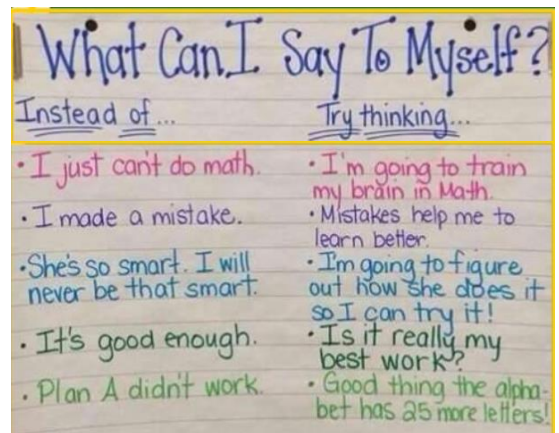 What Can I Say To Myself?
Instead of...
Try thinking...
• I just can't do math.
• I'm going to train
my brain in Math.
• I made a mistake.
• Mistakes help me to
learn better.
• She's so smart. I will
never be that smart.
• I'm going to figure
out how she does it
so I can try it!
• It's good enough.
• Is it really my
best work?
• Plan A didn't work.
• Good thing the alpha-
bet has 25 more letters!